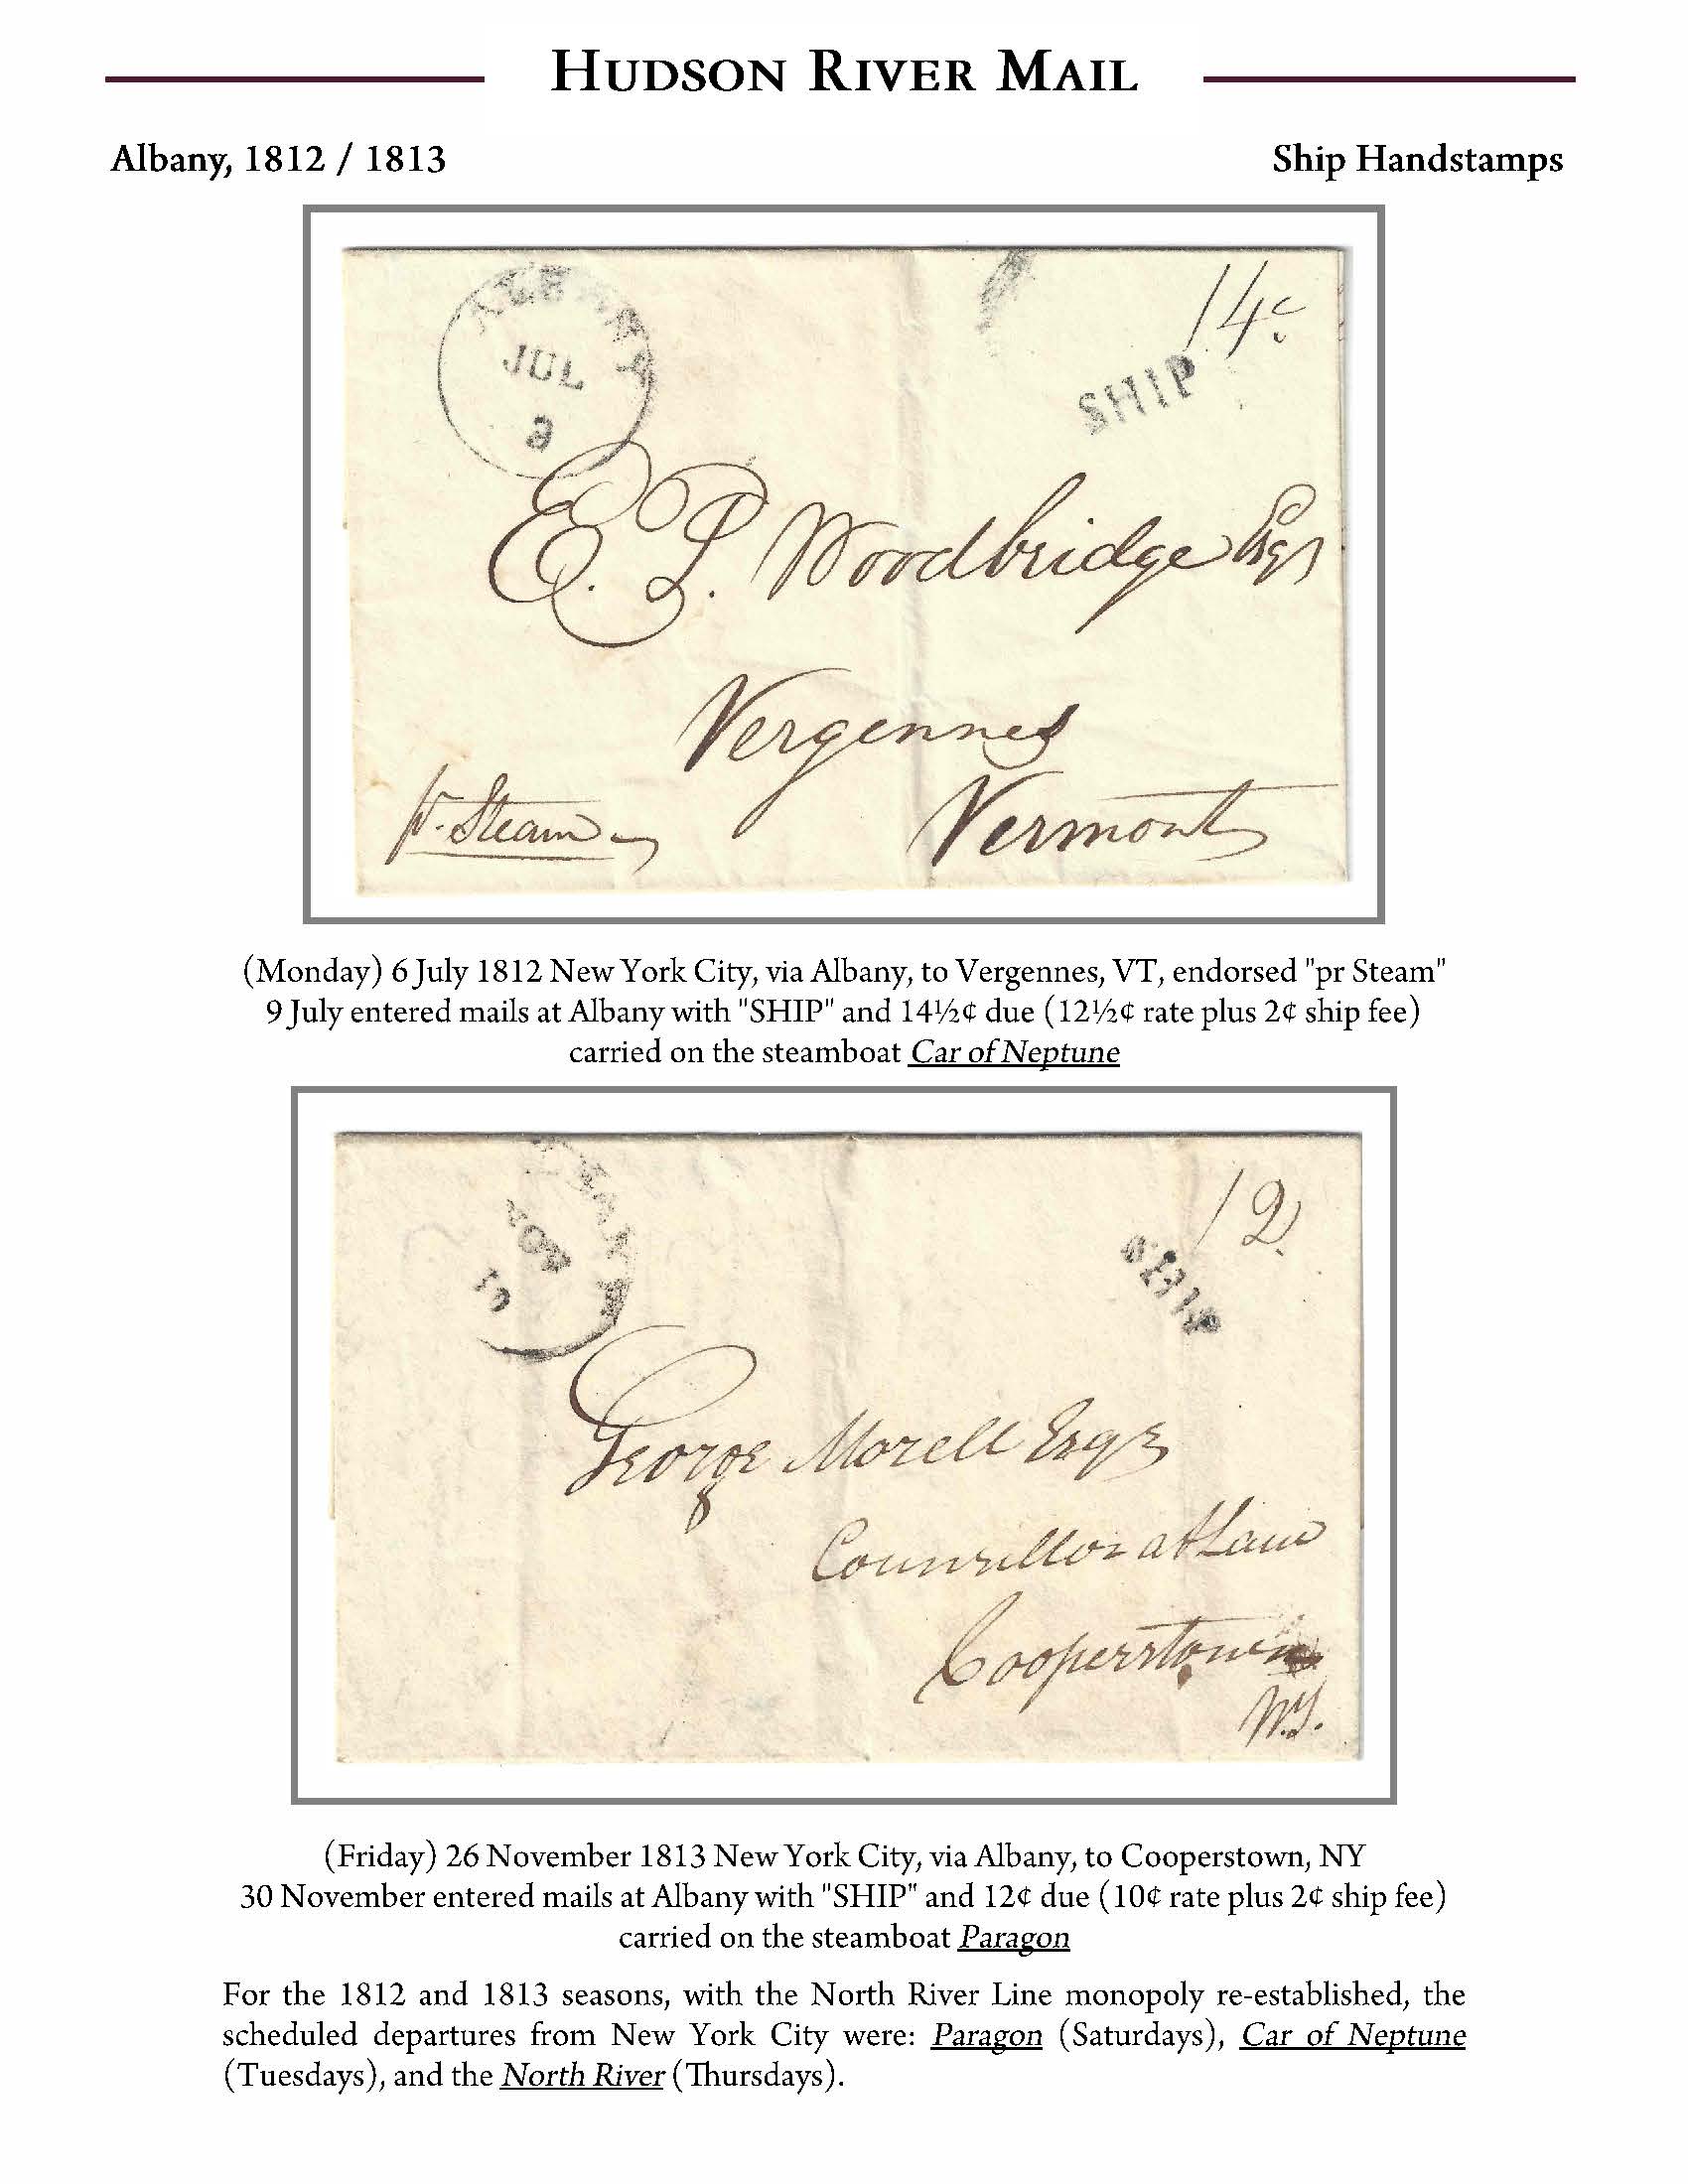 HUDSON RIVER MAIL
Albany, 1812 / 1813
Ship Handstamps
ALBANY
JUL
9
14c
SHIP
E. P. Woodbridge Esqr
Vergennes
Vermont
pr. Steam
(Monday) 6 July 1812 New York City, via Albany, to Vergennes, VT, endorsed "pr Steam"
9 July entered mails at Albany with "SHIP" and 14½¢ due (12½¢ rate plus 2¢ ship fee)
carried on the steamboat Car of Neptune
NOV
12
SHIP
George Morell Esqr
Counsellor at Law
Cooperstown
N.Y.
(Friday) 26 November 1813 New York City, via Albany, to Cooperstown, NY
30 November entered mails at Albany with "SHIP" and 12¢ due (10¢ rate plus 2¢ ship fee)
carried on the steamboat Paragon
For the 1812 and 1813 seasons, with the North River Line monopoly re-established, the
scheduled departures from New York City were: Paragon (Saturdays), Car of Neptune
(Tuesdays), and the North River (Thursdays).